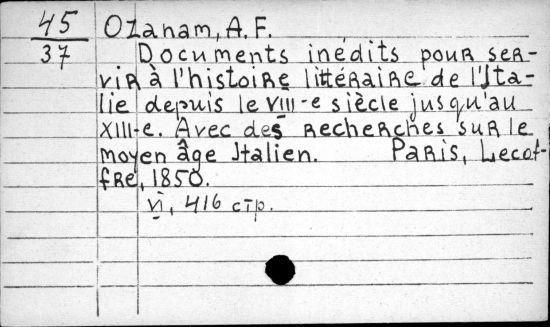 45 Ozanam, A. F.
37 Documents inédits pour ser-
vir à l'histoire littéraire de l'Ita-
lie depuis le VIII-e siècle jusqu'au
XIII-e. Avec des recherches sur le
moyen âge Italien. Paris, Lecof-
fre, 1850.
VI, 416 стр.